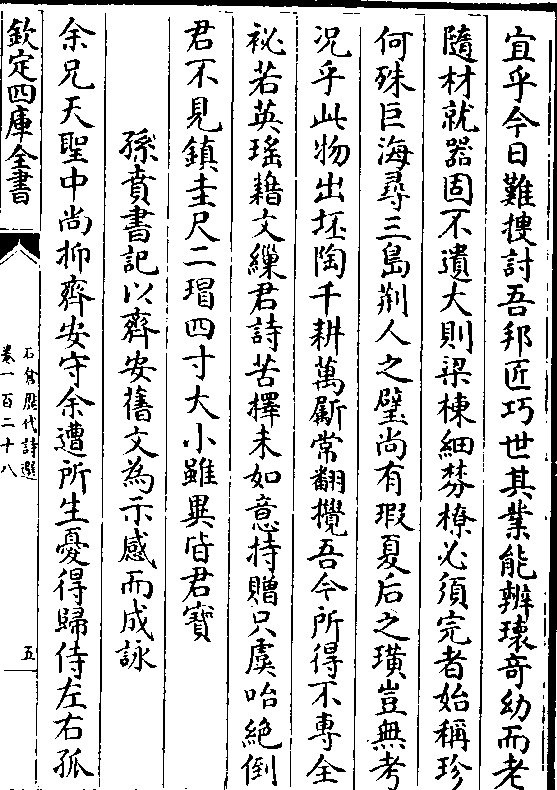 宜乎今日難搜討吾邦匠巧世其業能辨瓌奇幼而老
隨材就器固不遺大則梁棟細棼橑必須完者始稱珍
何殊巨海尋三島荆人之璧尚有瑕夏后之璜豈無考
况乎此物出坯陶千耕萬斸常翻攪吾今所得不專全
祕若英瑤藉文繅君詩苦擇未如意持贈只虞咍絶倒
君不見鎮圭尺二瑁四寸大小雖異皆君寶
孫賁書記以齊安舊文為示感而成詠
余兄天聖中尚抑齊安守余遭所生憂得歸侍左右孤
欽定四庫全書
石倉歴代詩選
卷一百二十八
五